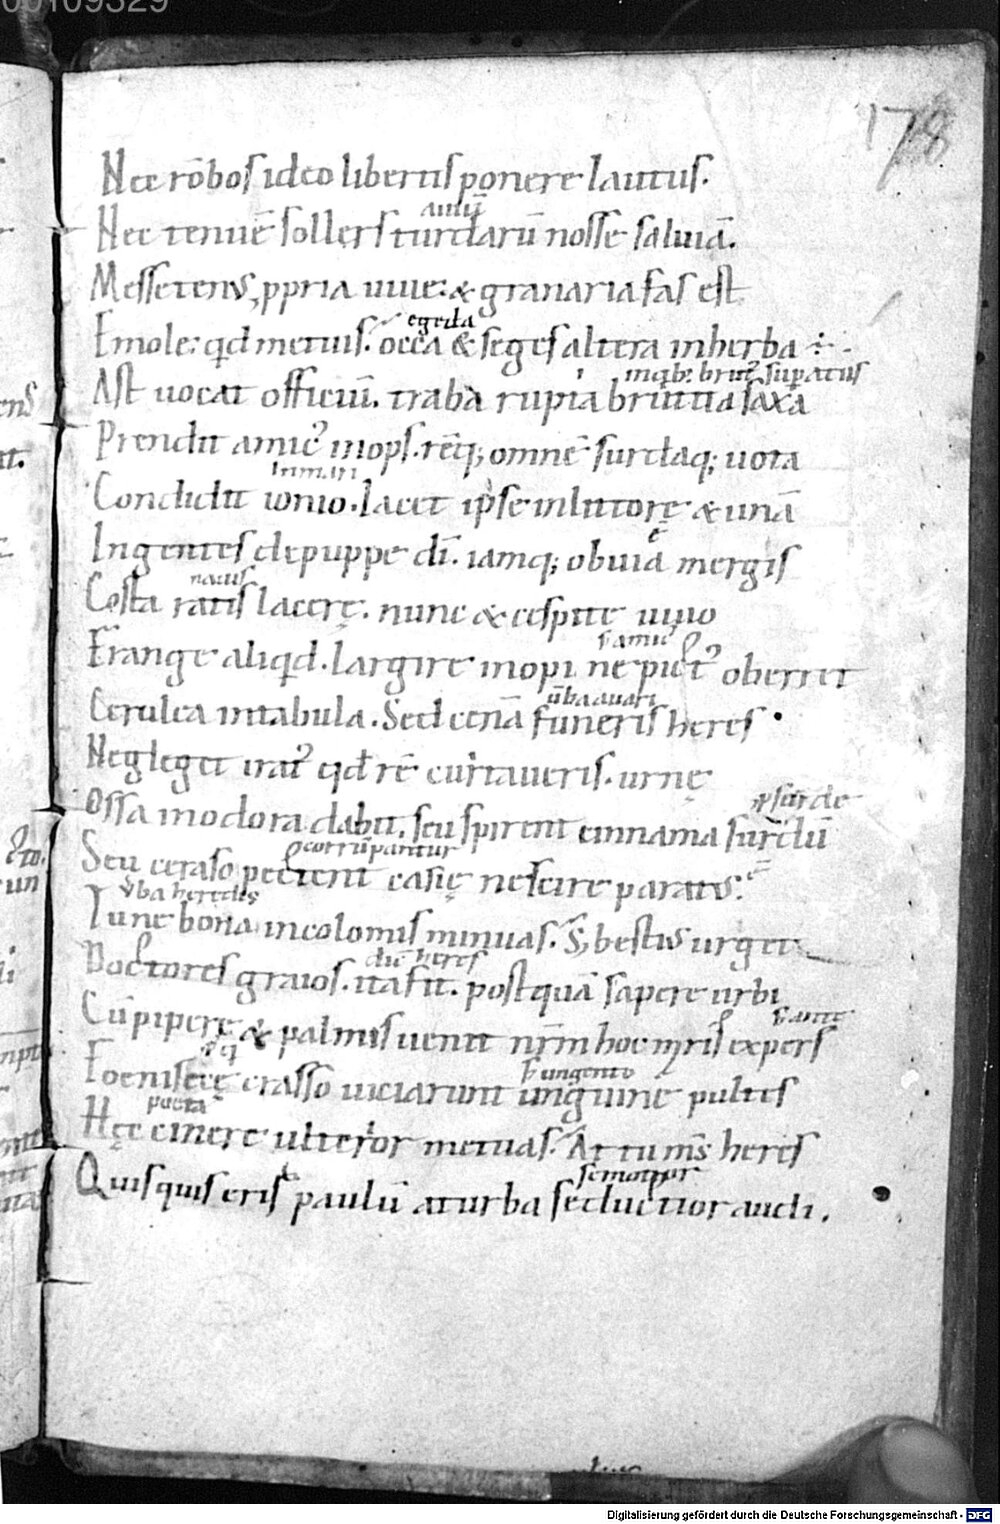 00109329
178
Nec rōbos ideo libertis ponere lautus.
auiū
Nec tenuē sollers turdarū nosse saliuā.
Messe tenus ꝓpria uiue: & granaria fas est
egeda
Emole: qd metuis. occa & seges altera inherba ÷.
inqb; brut; supatus
Ast uocat officiū. trabe rupta bruttia saxa
Prendit amic' inops. rēq; omnē surdaq; uota
in mari
Condidit ionio. Iacet ipse inlittore & unā
Ingentes depuppe di. iamq; obuia mergis
nauis
Costa ratis lacerę. nunc & cespite uiuo
s amic'
Frange aliqd. largire inopi ne pict' oberret
ūba auari
Cerulea intabula. Sed cenā funeris heres.
Negleget irat' qd rē curtaueris. urnę
surde
Ossa inodora dabit. seu spirent cinnama surdū
corrūpantur
Seu ceraso peccent casię nescire paratus.
ūba heredis
Tune bona incolomis minuas. S; bestius urget
dū heres
Doctores graios. ita fit. postquā sapere urbi
s arte
Cū pipere & palmis uenit nrm hoc mris expers
s ungento
Foenisecę crasso uiciarunt unguine pultes
poeta
Hęc cinere ulterior metuas. At tu ms heres
semotior
Quisquis eris paulū aturba seductior audi.
Digitalisierung gefördert durch die Deutsche Forschungsgemeinschaft - DFG